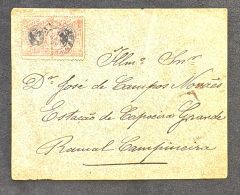 Illmº Snr
Dr José de Campos Novaes
Estação de Capoeira Grande
Ramal Campineiro